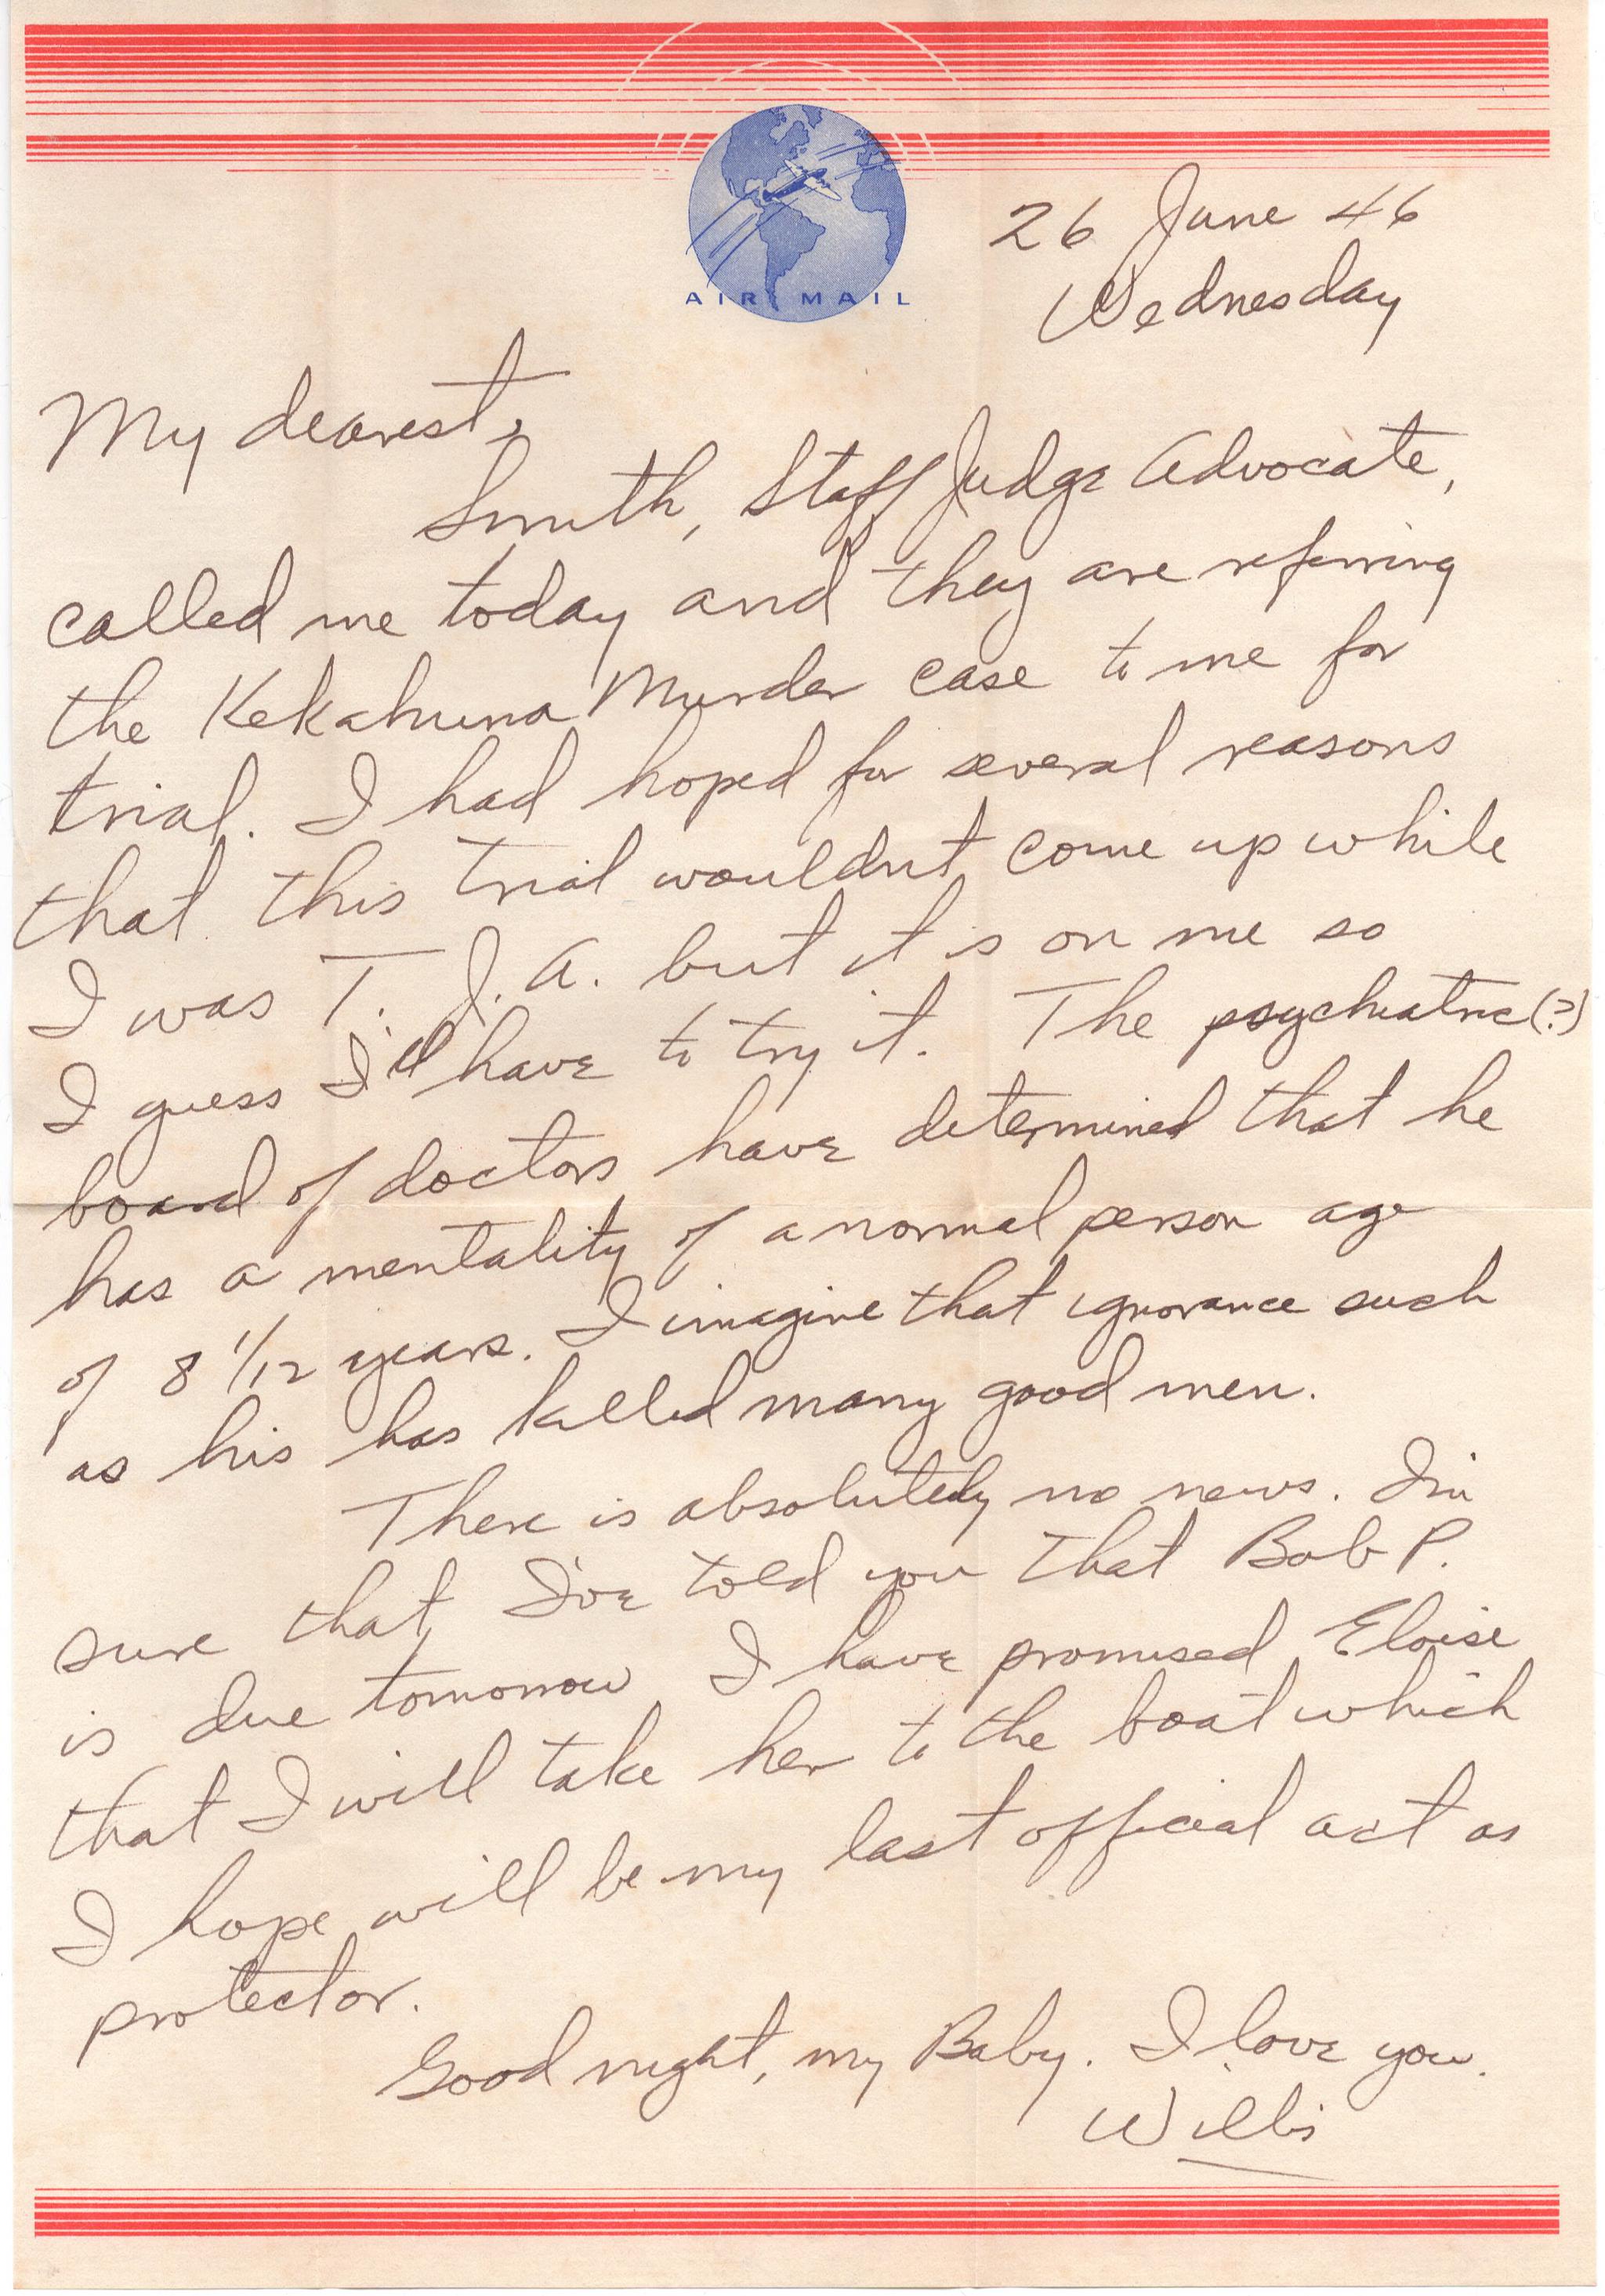 AIR MAIL
26 June 46
Wednesday
My dearest,
Smith, Staff Judge Advocate,
called me today and they are referring
the Kekahuna Murder case to me for
trial. I had hoped for several reasons
that this trial wouldn't come up while
I was T. J. A. but it is on me so
I guess I'll have to try it. The psychiatric(?)
board of doctors have determined that he
has a mentality of a normal person age
of 8 1/12 years. I imagine that ignorance such
as his has killed many good men.
There is absolutely no news. I'm
sure that I've told you that Bob P.
is due tomorrow. I have promised Eloise
that I will take her to the boat which
I hope will be my last official act as
protector.
Good night, my Baby. I love you.
Willis